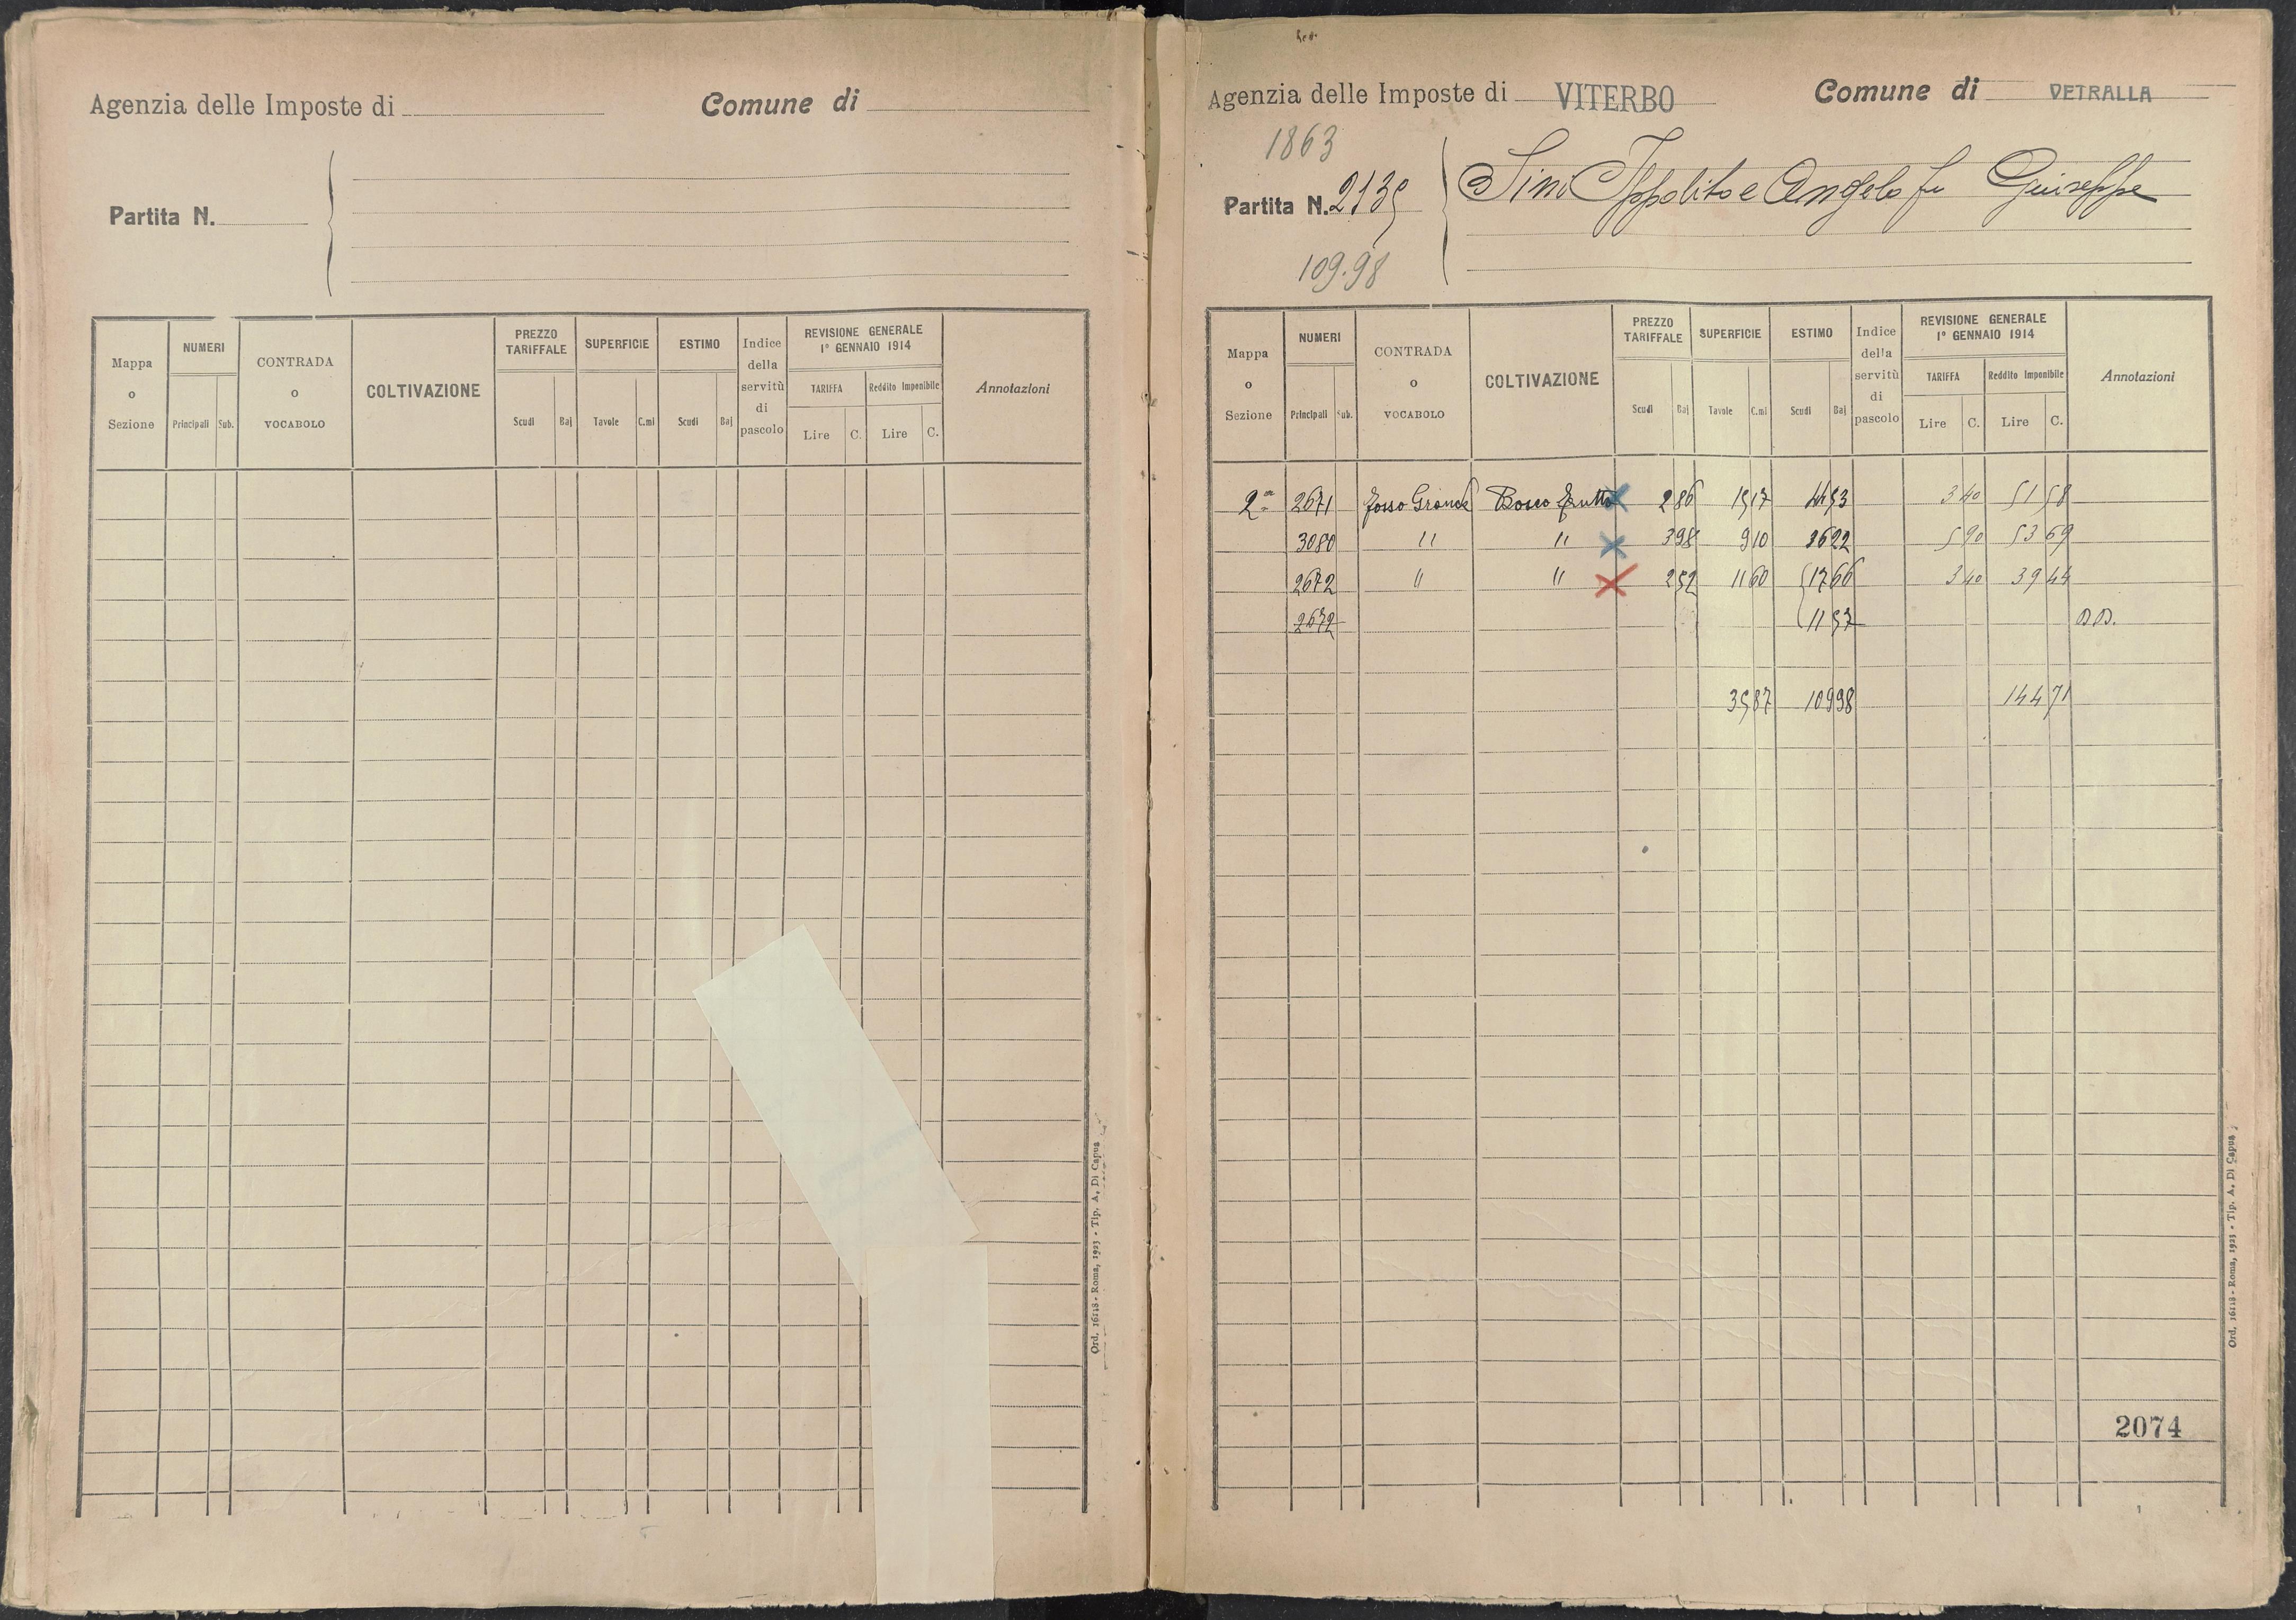 Agenzia delle Imposte di
Comune di
Partita N.
Mappa o Sezione
NUMERI
Principali Sub.
CONTRADA o VOCABOLO
COLTIVAZIONE
PREZZO TARIFFALE
Scudi Baj
SUPERFICIE
Tavole C.mi
ESTIMO
Scudi Baj
Indice della servitù di pascolo
REVISIONE GENERALE
1° GENNAIO 1914
TARIFFA Reddito Imponibile
Lire C. Lire C.
Annotazioni
Ord. 16118 - Roma, 1923 - Tip. A. Di Capua
Agenzia delle Imposte di VITERBO
Comune di VETRALLA
1863
Partita N. 2135
Sini Ippolito e Angelo fu Giuseppe
109.98
Mappa o Sezione
NUMERI
Principali Sub.
CONTRADA o VOCABOLO
COLTIVAZIONE
PREZZO TARIFFALE
Scudi Baj
SUPERFICIE
Tavole C.mi
ESTIMO
Scudi Baj
Indice della servitù di pascolo
REVISIONE GENERALE
1° GENNAIO 1914
TARIFFA Reddito Imponibile
Lire C. Lire C.
Annotazioni
2a 2671 Fosso Grande Bosco frutto 2 86 15 17 44 53 3 40 51 58
3080 " " 3 98 9 10 36 22 5 90 53 69
2672 " " 2 52 11 60 17 66 3 40 39 44
2672 11 57 DD.
35 87 109 98 144 71
2074
Ord. 16118 - Roma, 1923 - Tip. A. Di Capua